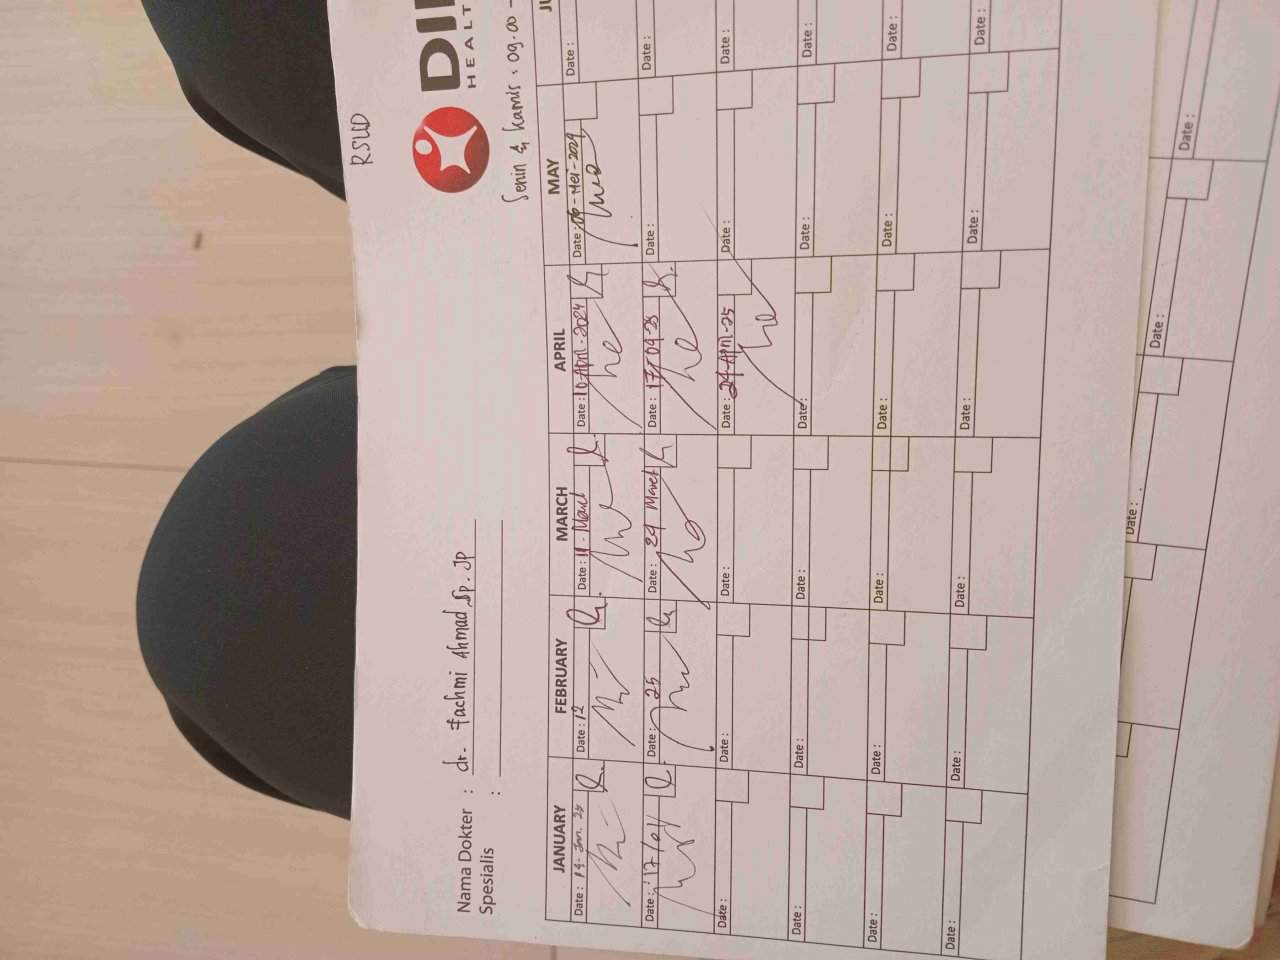 RSUD
DI
HEALT
Nama Dokter : dr. Fachmi Ahmad Sp. JP
Spesialis :
Senin & Kamis : 09.00 -
JANUARY FEBRUARY MARCH APRIL MAY JU
Date : 14 - Jan. Date : 12 Date : 11 - March Date : 10 - April - 2024 Date : 06 - Mei - 2024 Date :
Date : 17 Date : 25 Date : 24 March Date : 17 - 04 - 25 Date : Date :
Date : Date : Date : Date : 24 - April - 25 Date : Date :
Date : Date : Date : Date : Date : Date :
Date : Date : Date : Date : Date : Date :
Date : Date : Date : Date : Date : Date :
Date : Date : Date :